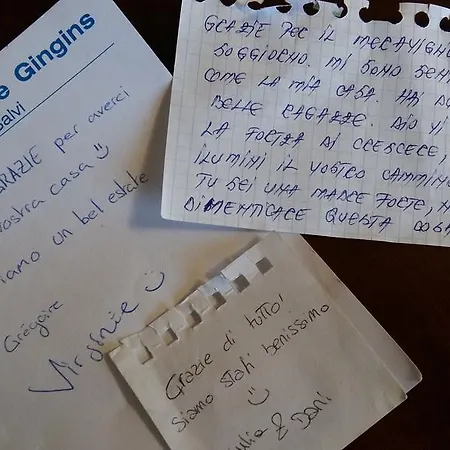 e Gingins
salvi
GRAZIE per averci
vostra casa
iamo un bel estate
Grégoire
Virginie
GRAZIE PER IL MERAVIGLIO
SOGGIORNO. MI SONO SEN
COME LA MIA CASA. HAI D
BELLE RAGAZZE. DIO VI
LA FORZA DI CRESCERE,
ILUMINI IL VOSTRO CAMMIN
TU SEI UNA MADRE FORTE, N
DIMENTICARE QUESTA COSA
Grazie di tutto!
siamo stati benissimo
ulia & Dani